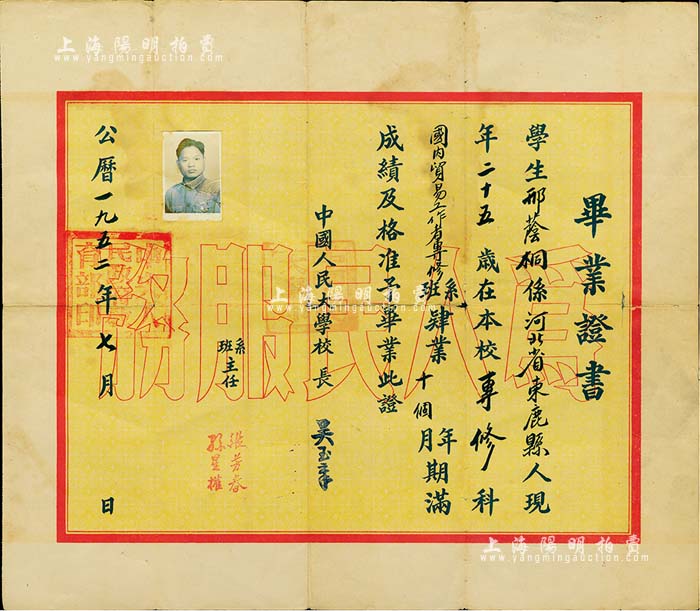 上海陽明拍賣
www.yangmingauction.com
上海陽明拍賣
www.yangmingauction.com
畢業證書
學生邢蔭桐係河北省束鹿縣人現
年二十五歲在本校專修科
國內貿易工作者專修班系肄業十個月年期滿
成績及格准予畢業此證
中國人民大學校長 吳玉章
系
班主任
張芳春
孫星權
公曆一九五二年七月 日
為人民服務
上海陽明拍賣
www.yangmingauction.com
上海陽明拍賣
www.yangmingauction.com